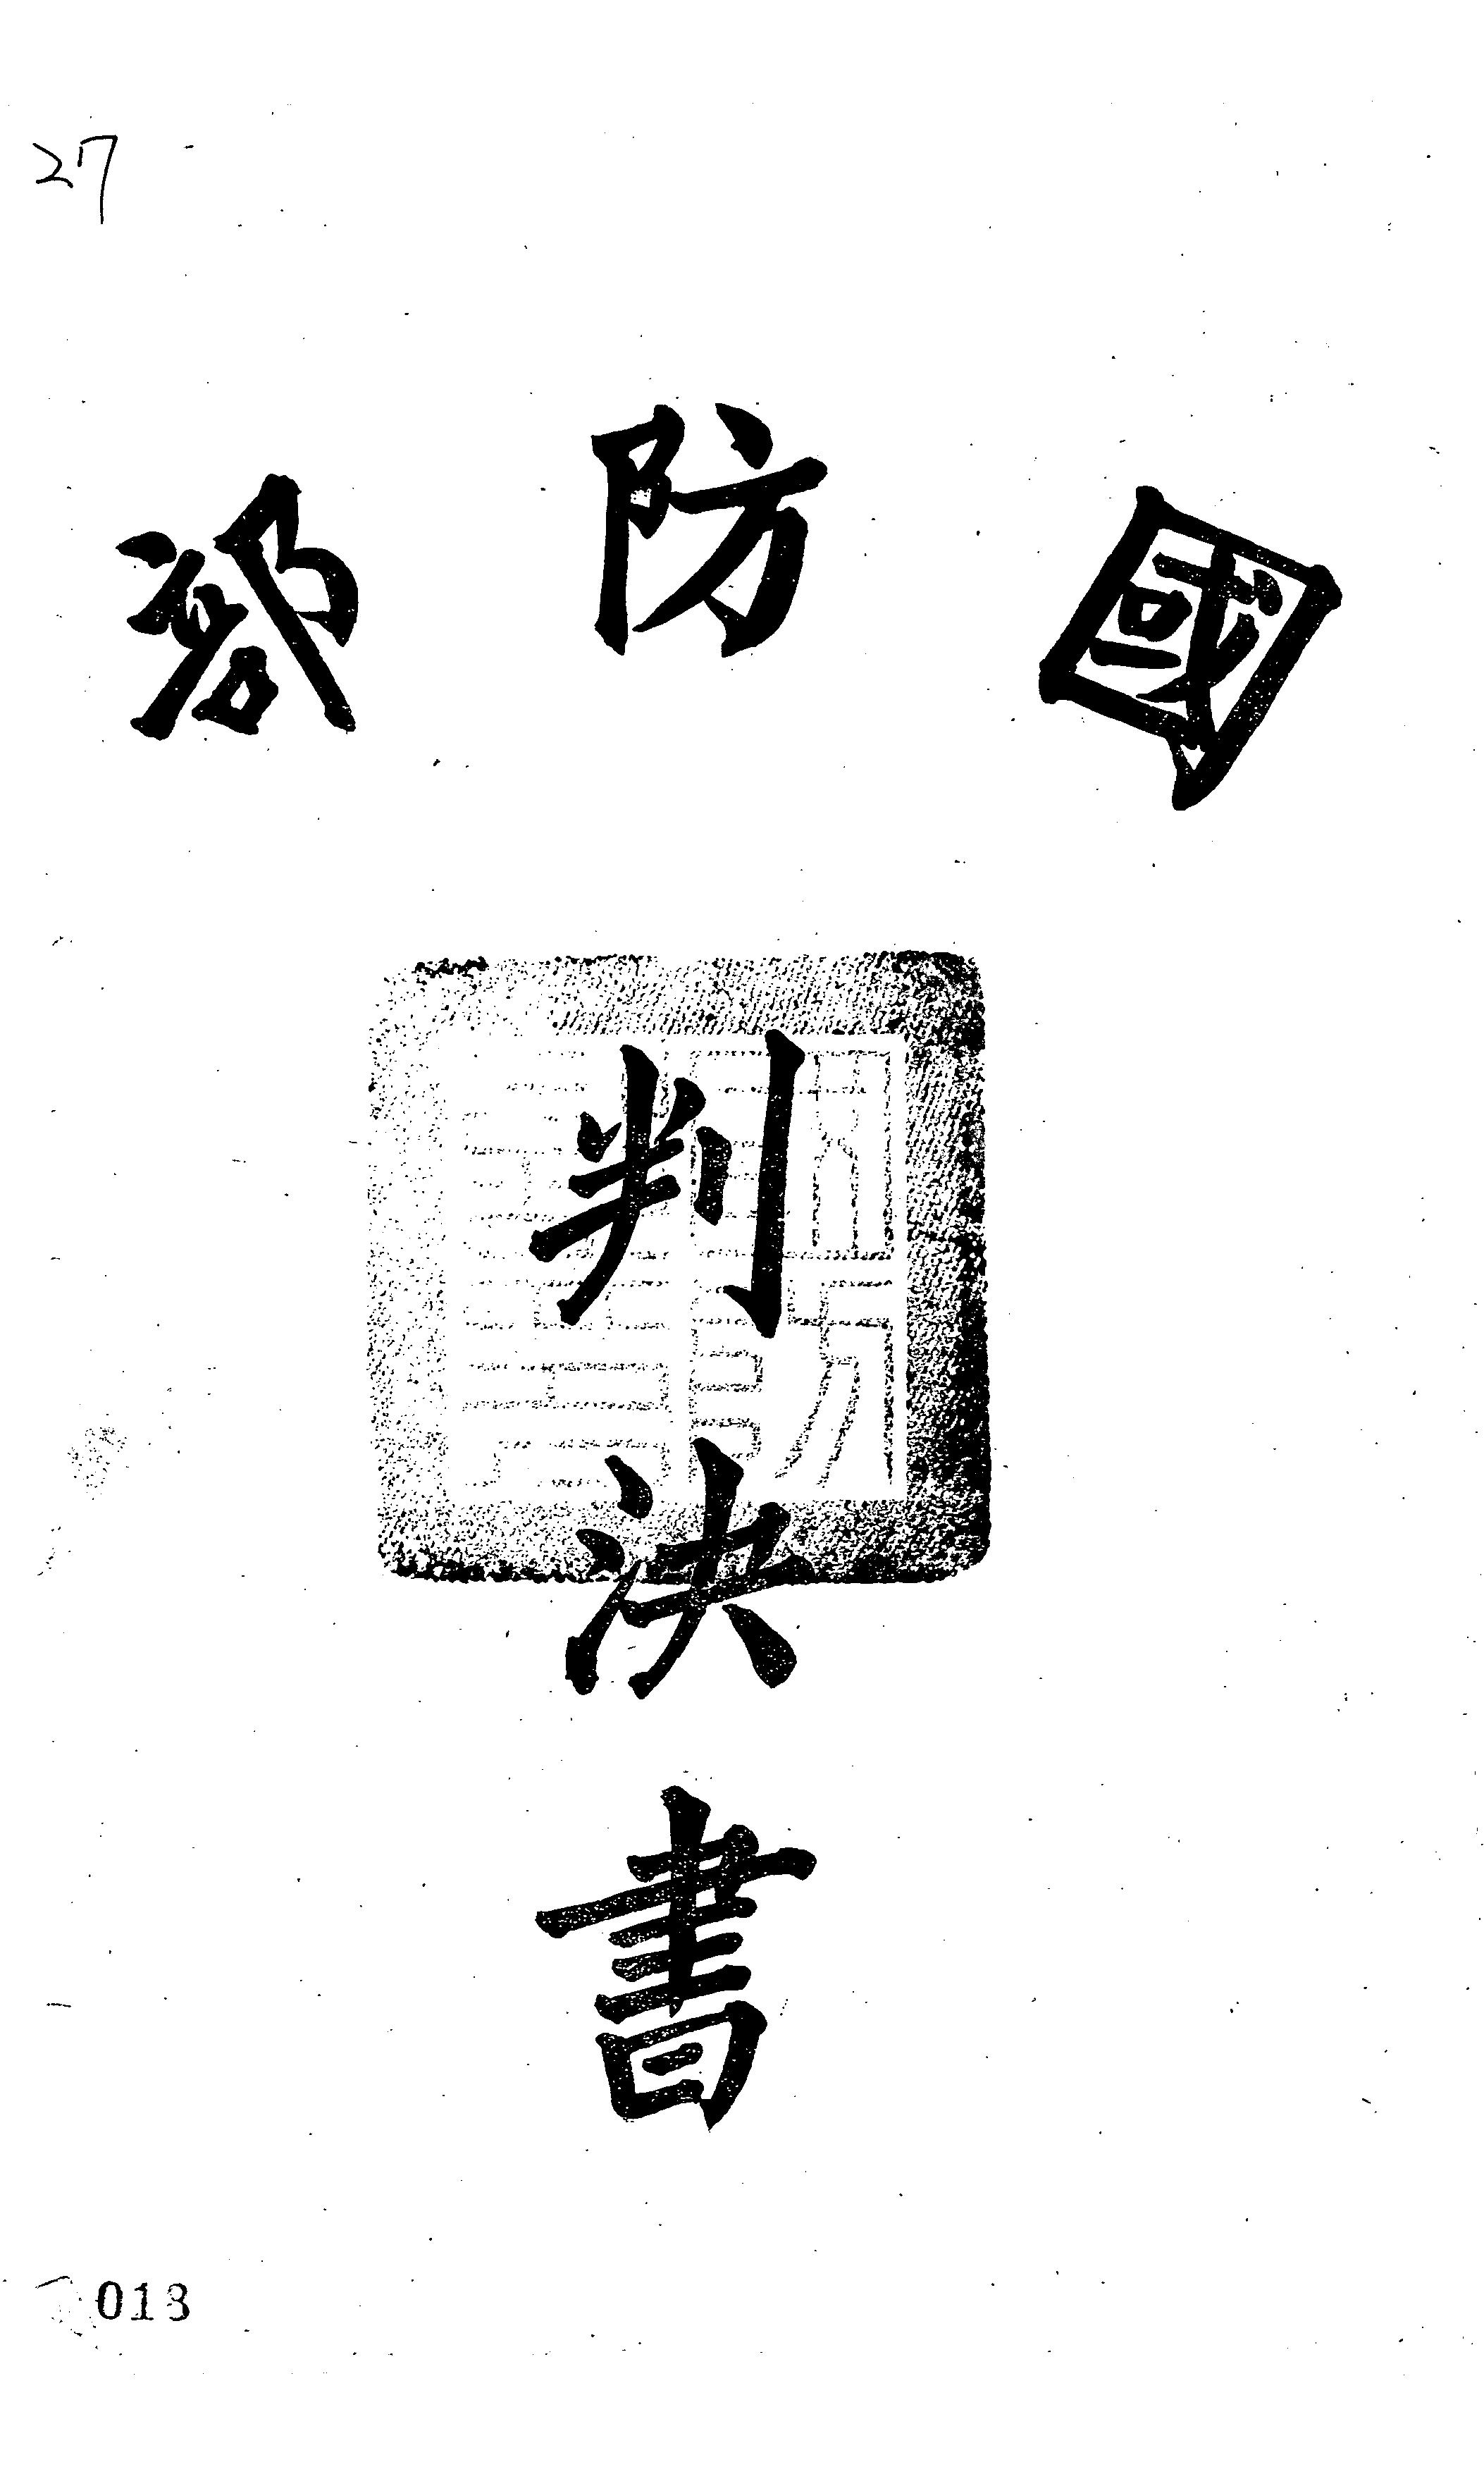 27
國防部
判決書
018